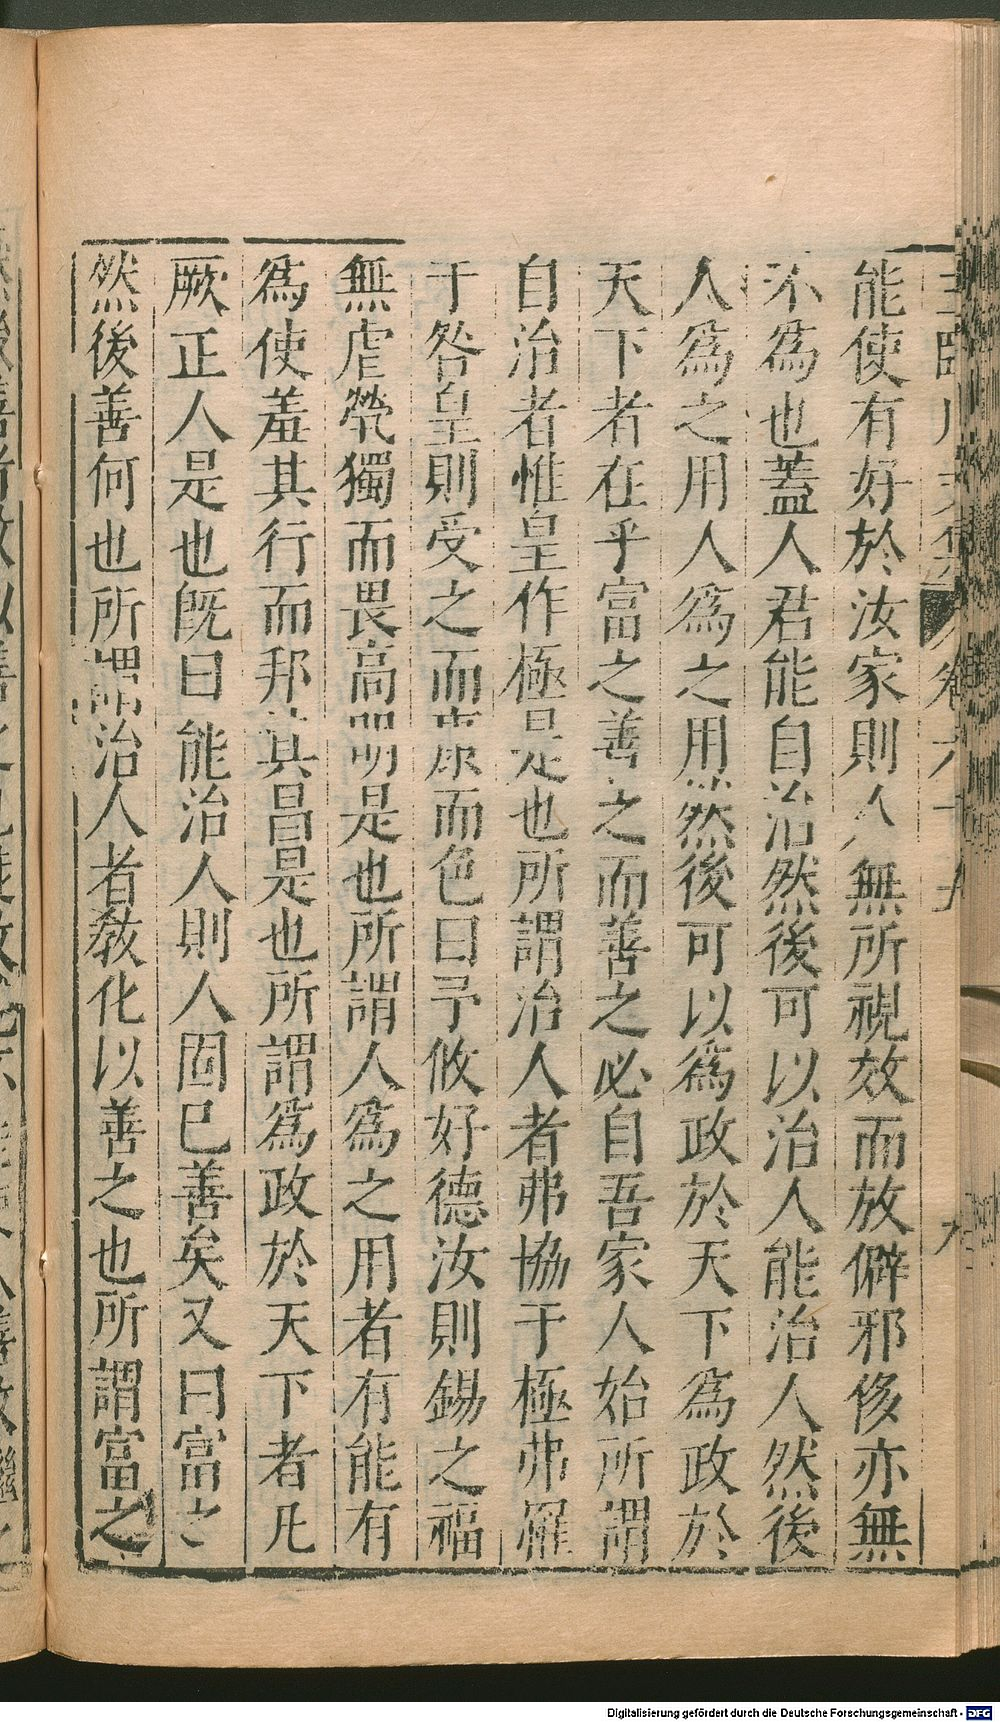 能使有好於汝家則人無所視效而放僻邪侈亦無
不為也蓋人君能自治然後可以治人能治人然後
人為之用人為之用然後可以為政於天下為政於
天下者在乎富之善之而善之必自吾家人始所謂
自治者惟皇作極是也所謂治人者弗協于極弗罹
于咎皇則受之而康而色曰予攸好德汝則錫之福
無虐煢獨而畏高明是也所謂人為之用者有能有
為使羞其行而邦其昌是也所謂為政於天下者凡
厥正人是也既曰能治人則人固已善矣又曰富之
然後善何也所謂治人者敎化以善之也所謂富之
Digitalisierung gefördert durch die Deutsche Forschungsgemeinschaft - DFG